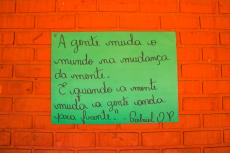 "A gente muda o
mundo na mudança
da mente.
E quando a mente
muda a gente anda
para frente." - Gabriel O.P.